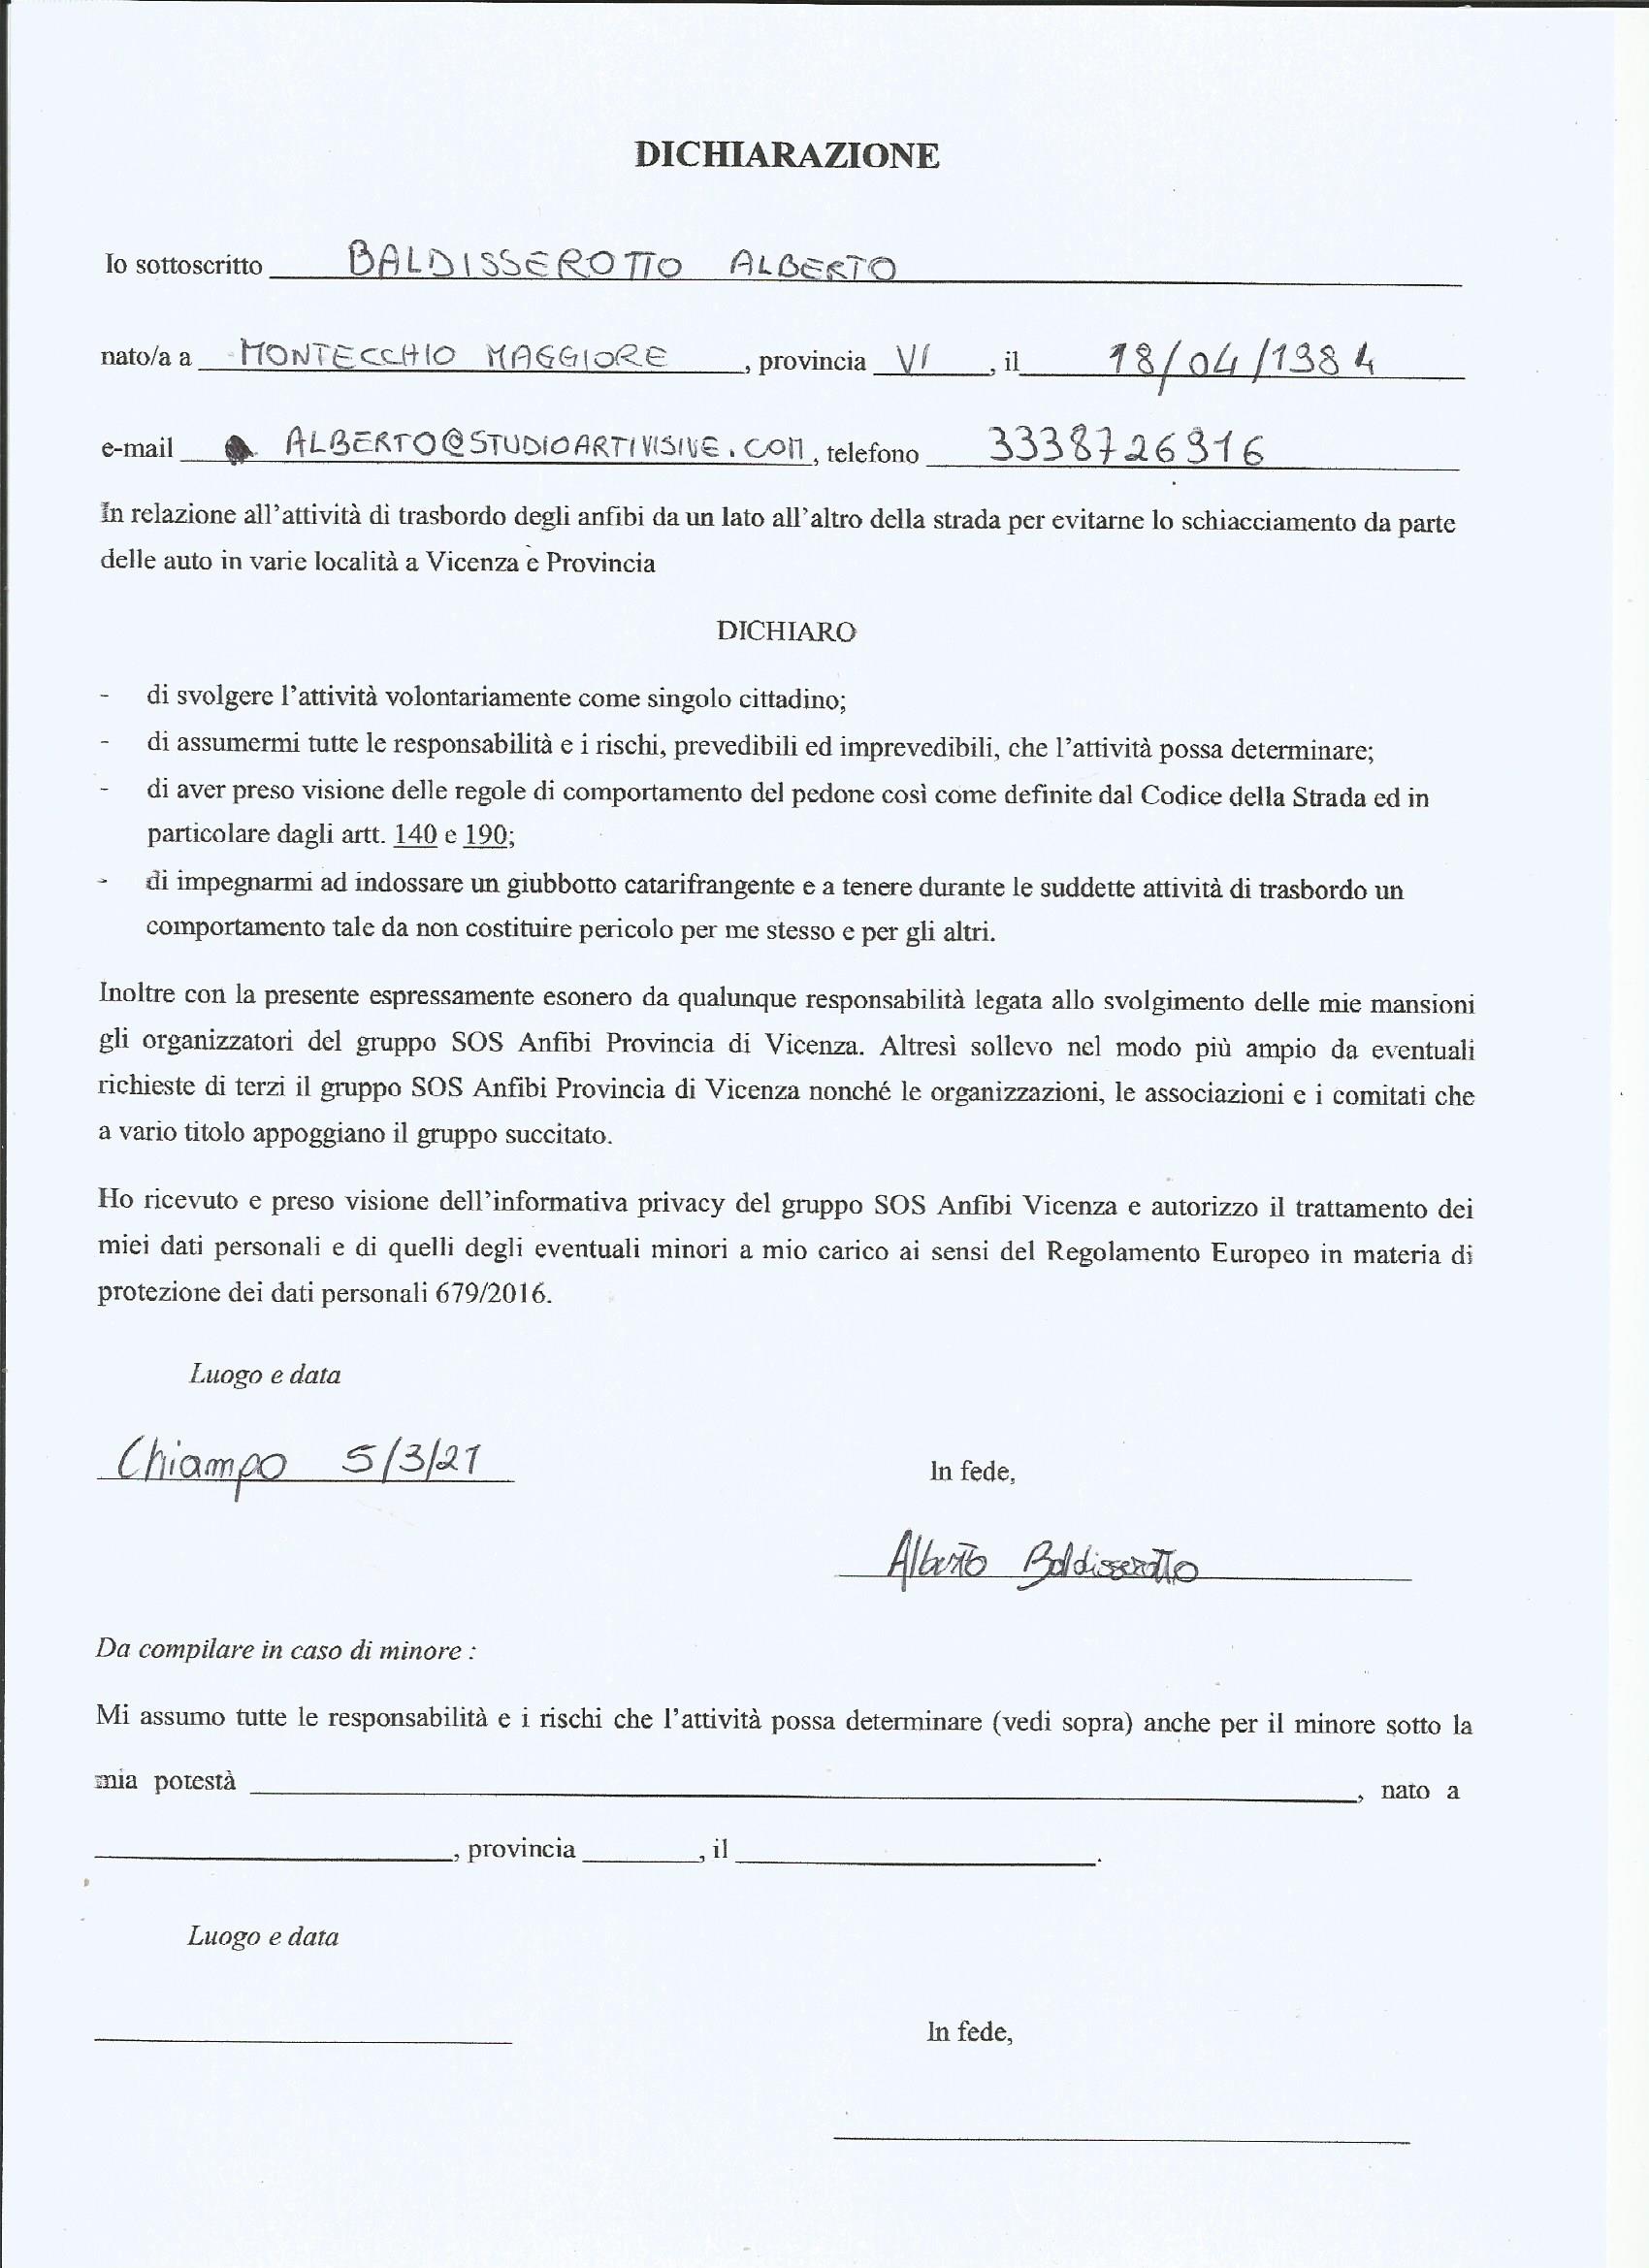 DICHIARAZIONE
Io sottoscritto BALDISSEROTTO ALBERTO
nato/a a MONTECCHIO MAGGIORE, provincia VI, il 18/04/1984
e-mail ALBERTO@STUDIOARTIVISIVE.COM, telefono 3338726916
In relazione all'attività di trasbordo degli anfibi da un lato all'altro della strada per evitarne lo schiacciamento da parte
delle auto in varie località a Vicenza e Provincia
DICHIARO
- di svolgere l'attività volontariamente come singolo cittadino;
- di assumermi tutte le responsabilità e i rischi, prevedibili ed imprevedibili, che l'attività possa determinare;
- di aver preso visione delle regole di comportamento del pedone così come definite dal Codice della Strada ed in
particolare dagli artt. 140 e 190;
- di impegnarmi ad indossare un giubbotto catarifrangente e a tenere durante le suddette attività di trasbordo un
comportamento tale da non costituire pericolo per me stesso e per gli altri.
Inoltre con la presente espressamente esonero da qualunque responsabilità legata allo svolgimento delle mie mansioni
gli organizzatori del gruppo SOS Anfibi Provincia di Vicenza. Altresì sollevo nel modo più ampio da eventuali
richieste di terzi il gruppo SOS Anfibi Provincia di Vicenza nonché le organizzazioni, le associazioni e i comitati che
a vario titolo appoggiano il gruppo succitato.
Ho ricevuto e preso visione dell'informativa privacy del gruppo SOS Anfibi Vicenza e autorizzo il trattamento dei
miei dati personali e di quelli degli eventuali minori a mio carico ai sensi del Regolamento Europeo in materia di
protezione dei dati personali 679/2016.
Luogo e data
Chiampo 5/3/21
In fede,
Alberto Baldisserotto
Da compilare in caso di minore :
Mi assumo tutte le responsabilità e i rischi che l'attività possa determinare (vedi sopra) anche per il minore sotto la
mia potestà , nato a
, provincia , il .
Luogo e data
In fede,